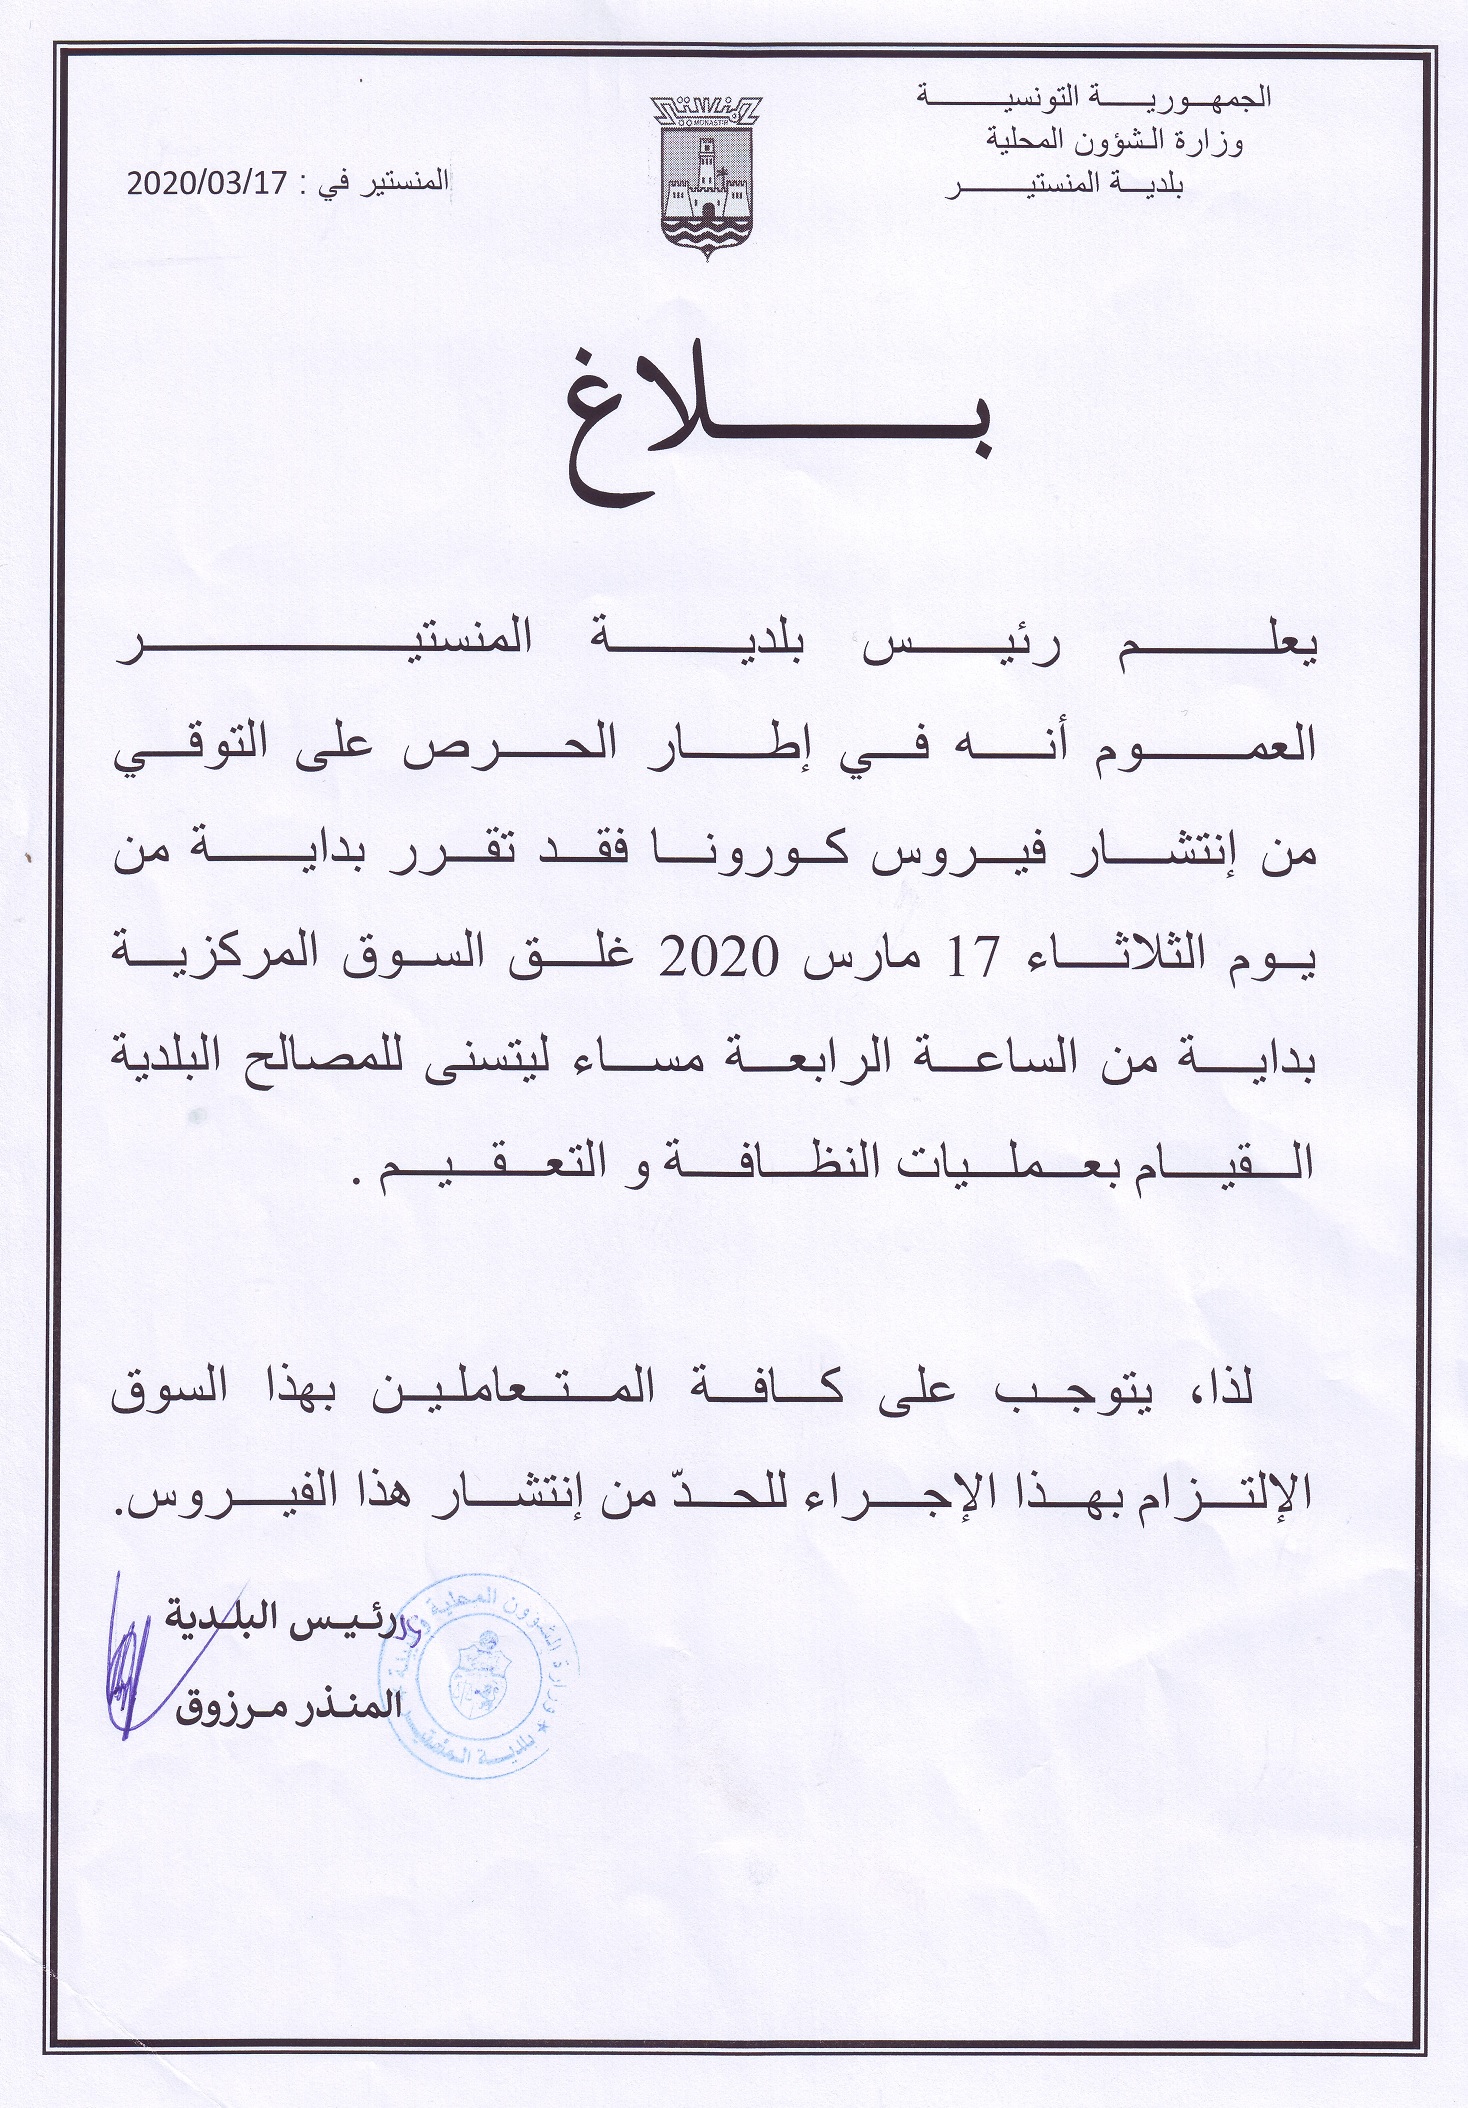 الجمهورية التونسية
وزارة الشؤون المحلية
بلدية المنستير
المنستير
MONASTIR
المنستير في : 2020/03/17
بلاغ
يعلم رئيس بلدية المنستير
العموم أنه في إطار الحرص على التوقي
من إنتشار فيروس كورونا فقد تقرر بداية من
يوم الثلاثاء 17 مارس 2020 غلق السوق المركزية
بداية من الساعة الرابعة مساء ليتسنى للمصالح البلدية
القيام بعمليات النظافة و التعقيم .
لذا، يتوجب على كافة المتعاملين بهذا السوق
الإلتزام بهذا الإجراء للحدّ من إنتشار هذا الفيروس.
رئيس البلدية
المنذر مرزوق
وزارة الشؤون المحلية والبيئة
بلدية المنستير